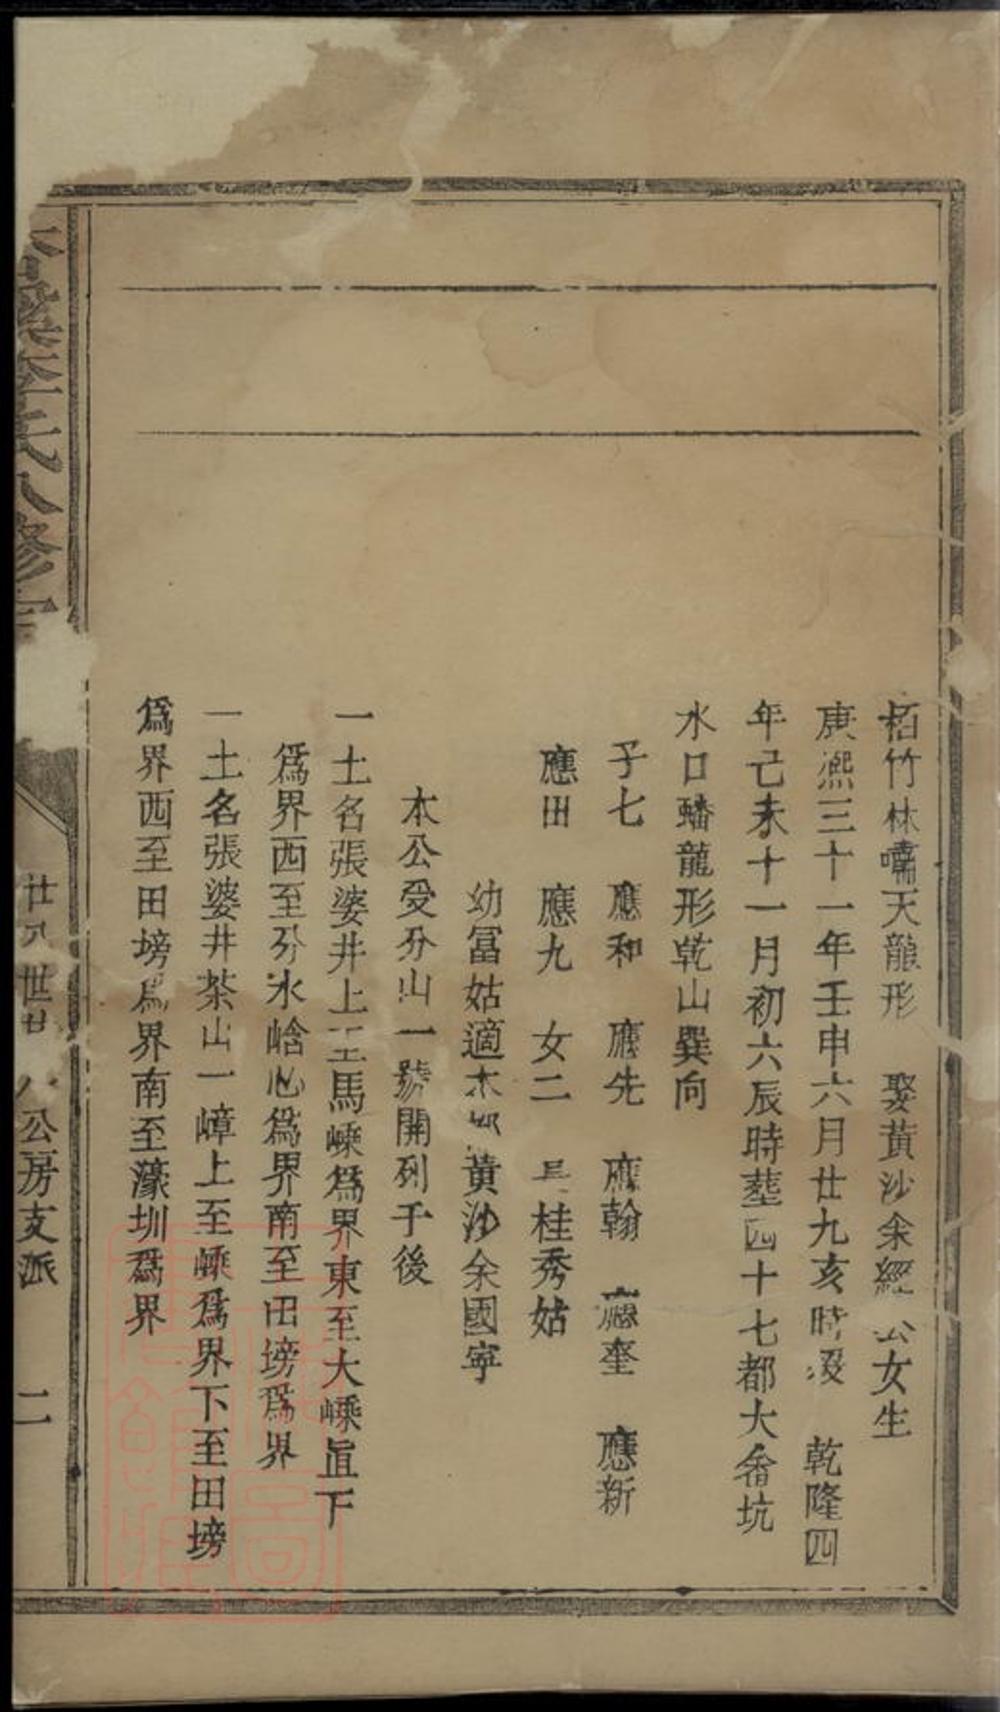 栢竹林嘯天龍形 娶黃沙余經公女生
康熙三十一年壬申六月廿九亥時歿 乾隆四
年己未十一月初六辰時塟四十七都大畨坑
水口蟠龍形乾山巽向
子七 應和 應先 應翰 應奎 應新
應田 應九 女二 長桂秀姑
幼冨姑適 黃沙余國寧
本公受分山一號開列于後
一土名張婆井上至馬嵊爲界東至大嵊直下
爲界西至分水峆心爲界南至田塝爲界
一土名張婆井茶山一嶂上至嵊爲界下至田塝
爲界西至田塝爲界南至濠圳爲界
李氏八修
廿八世廿 八公房支派 二